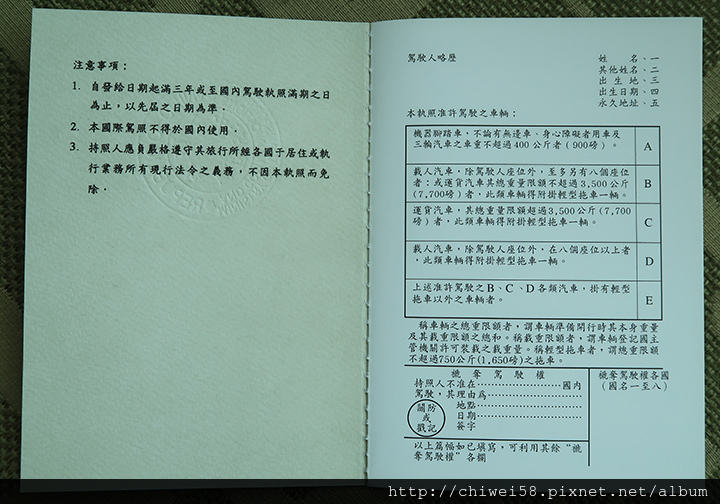 注意事項：
1. 自發給日期起滿三年或至國內駕駛執照滿期之日
為止，以先屆之日期為準．
2. 本國際駕照不得於國內使用．
3. 持照人應負嚴格遵守其旅行所經各國于居住或執
行業務所有現行法令之義務，不因本執照而免
除．
駕駛人略歷
姓　　名、一
其他姓名、二
出 生 地、三
出生日期、四
永久地址、五
本執照准許駕駛之車輛：
機器腳踏車，不論有無邊車、身心障礙者用車及
三輪汽車之車重不超過400公斤者（900磅）。
A
載人汽車，除駕駛人座位外，至多另有八個座位
者；或運貨汽車其總重量限額不超過3,500公斤
(7,700磅)者，此類車輛得附掛輕型拖車一輛。
B
運貨汽車，其總重量限額超過3,500公斤(7,700
磅)者，此類車輛得附掛輕型拖車一輛。
C
載人汽車，除駕駛人座位外，在八個座位以上者
，此類車輛得附掛輕型拖車一輛。
D
上述准許駕駛之B、C、D各類汽車，掛有輕型
拖車以外之車輛者。
E
稱車輛之總重限額者，謂車輛準備開行時其本身重量
及其載重限額之總和。稱載重限額者，謂車輛登記國主
管機關許可裝載之載重量。稱輕型拖車者，謂總重限額
不超過750公斤(1,650磅)之拖車。
褫 奪 駕 駛 權
持照人不准在⋯⋯⋯⋯⋯⋯國內
駕駛，其理由為⋯⋯⋯⋯⋯⋯
關防
或
戳記
地點⋯⋯⋯⋯⋯⋯
日期⋯⋯⋯⋯⋯⋯
簽字
以上篇幅如已填寫，可利用其餘“褫
奪駕駛權”各欄
褫奪駕駛權各國
(國名一至八)
http://chiwei58.pixnet.net/album